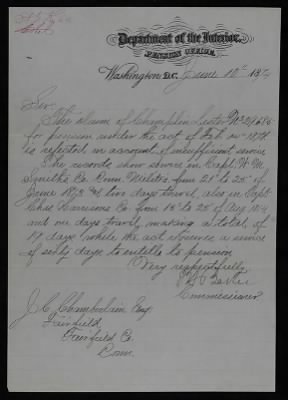 Department of the Interior,
PENSION OFFICE,
Washington D.C. June 10" 187
Sir.
The claim of Champlin Lester No 24685
for pension under the act of Feb 14" 1871
is rejected on account of insufficient service
The records show service in Capt. W. M.
Smiths Co. Conn. Militia from 21" to 25" of
June 1813 and two days travel, also in Capt
Chas Harrisons Co. from 13" to 25" of Aug 1814
and one days travel, making a total of
19 days while the act requires a service
of sixty days to entitle to pension
Very respectfully
Baker
Commissioner
J. C. Chamberlain Esq
Fairfield
Fairfield Co.
Conn.